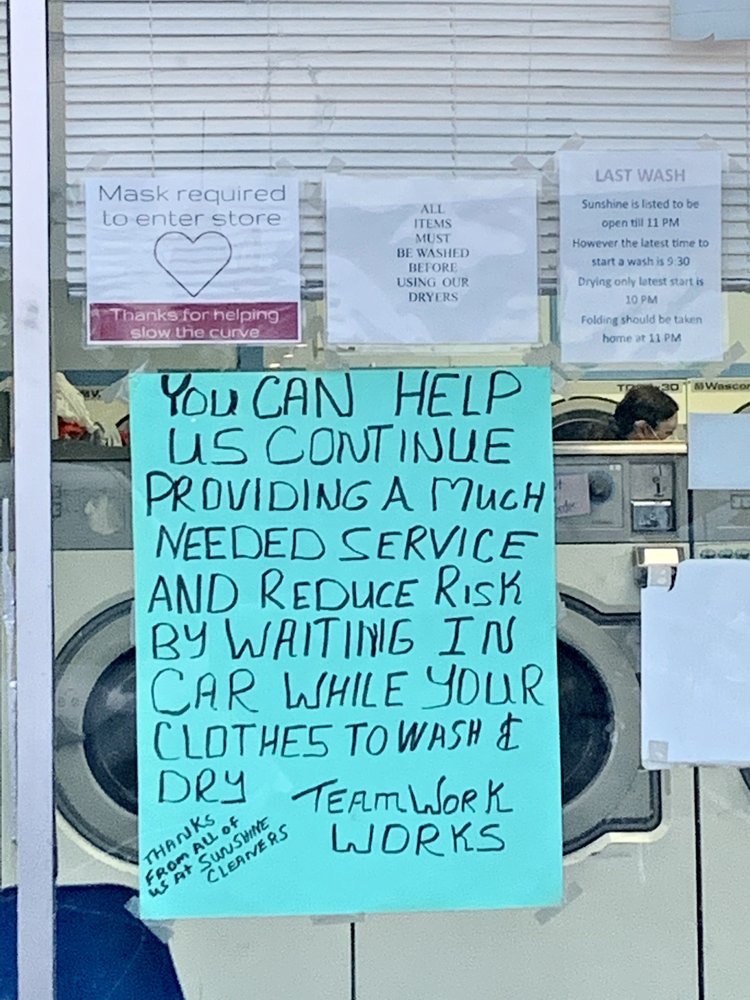 Mask required
to enter store
Thanks for helping
slow the curve
ALL
ITEMS
MUST
BE WASHED
BEFORE
USING OUR
DRYERS
LAST WASH
Sunshine is listed to be
open till 11 PM
However the latest time to
start a wash is 9:30
Drying only latest start is
10 PM
Folding should be taken
home at 11 PM
YOU CAN HELP
US CONTINUE
PROVIDING A MUCH
NEEDED SERVICE
AND REDUCE RISK
BY WAITING IN
CAR WHILE YOUR
CLOTHES TO WASH &
DRY
TEAMWORK
WORKS
THANKS
FROM ALL OF
US AT SUNSHINE
CLEANERS